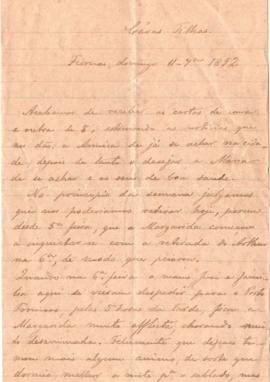 Caras Filhas
Fornos, domingo 11-7bro 1892
Acabamos de receber as cartas de uma
e outra de 8, estimando as noticias que
nos dão, a Amina de já se achar na cida
de, depois de tanto o desejar e Maria
de se achar e os seus de boa saude.
No principio da semana julgamos
que nos poderiamos retirar hoje, porem
desde 5ª feira, que a Margarida começou
a inquietar-se com a retirada do
na 6ª, de modo que peiorou.
Quando na 6ª feira a mana José e
aqui se vieram despedir para o Porto
Fornos, pelas 5 horas da tarde, ficou a
Margarida muito afflicta, chorando muito
desanimada. Felizmente que depois to
mou mais algum animo, de sorte que
dormiu melhor a noite pª o sabbado, mas